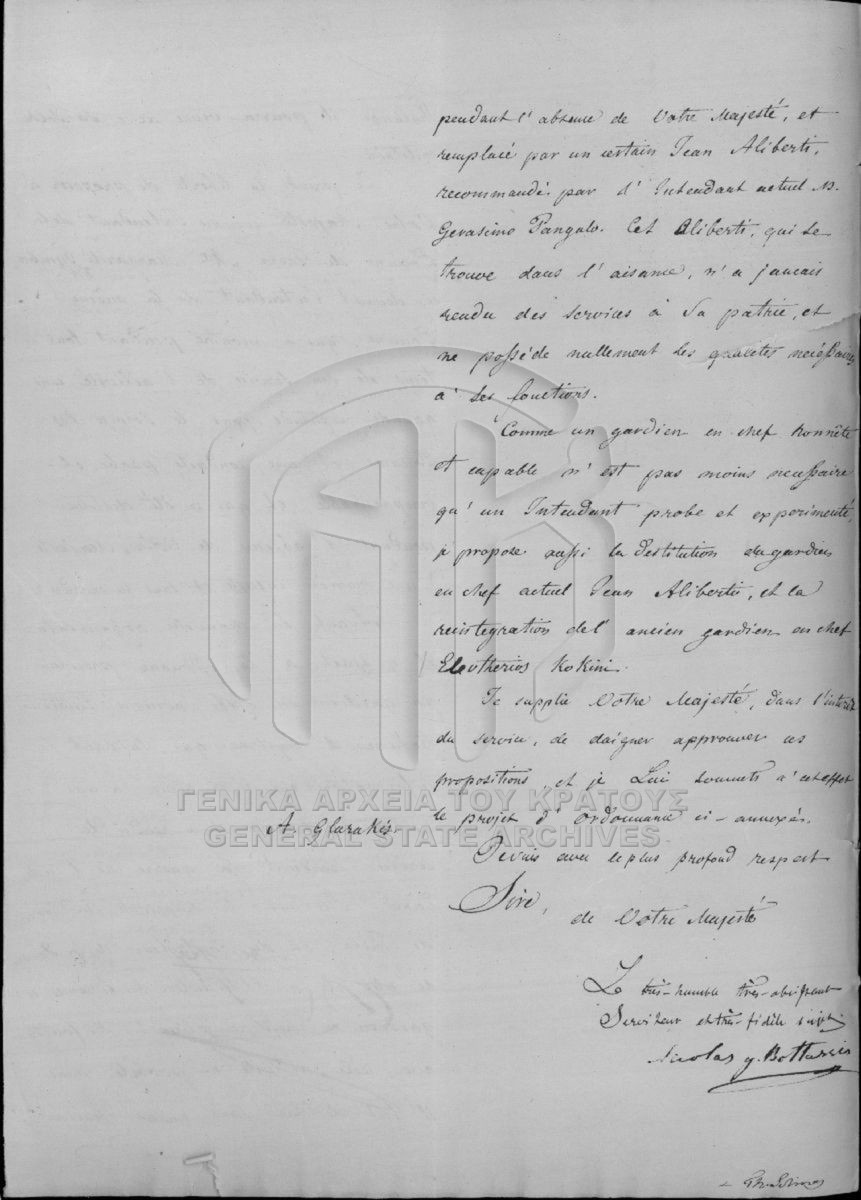 pendant l'absence de Votre Majesté, et
remplacé par un certain Jean Aliberti,
recommandé par d' Intendant actuel M.
Gerasimo Pangalo. Cet Aliberti, qui se
trouve dans l'aisance, n'a jamais
rendu des services à Sa patrie, et
ne possède nullement les qualités nécessaires
à ses fonctions.
Comme un gardien en chef honnête
et capable n'est pas moins necessaire
qu'un Intendant probe et experimenté,
je propose aussi la destitution du gardien
en chef actuel Jean Alibertis, et la
reintegration de l'ancien gardien en chef
Eleutherios Kokini.
Je supplie Votre Majesté, dans l'interêt
du service, de daigner approuver ces
propositions, et je Lui soumets à cet effet
ΓΕΝΙΚΑ ΑΡΧΕΙΑ ΤΟΥ ΚΡΑΤΟΥΣ
le projet d'Ordonnance ci-annexés.
A. Glarakés.
GENERAL STATE ARCHIVES
Je suis avec le plus profond respect
Sire,
de Votre Majesté
Le très-humble très-obéissant
Serviteur et très-fidèle sujet
Nicolas g. Bottaris